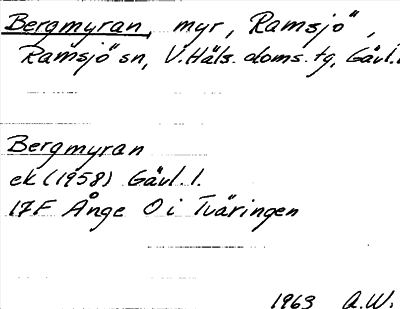 Bergmyran, myr, Ramsjö",
Ramsjö sn, V. Häls. doms. tg, Gävl.
Bergmyran
ek (1958) Gävl. l.
17F Ånge O i Tväringen
1963 A.W.